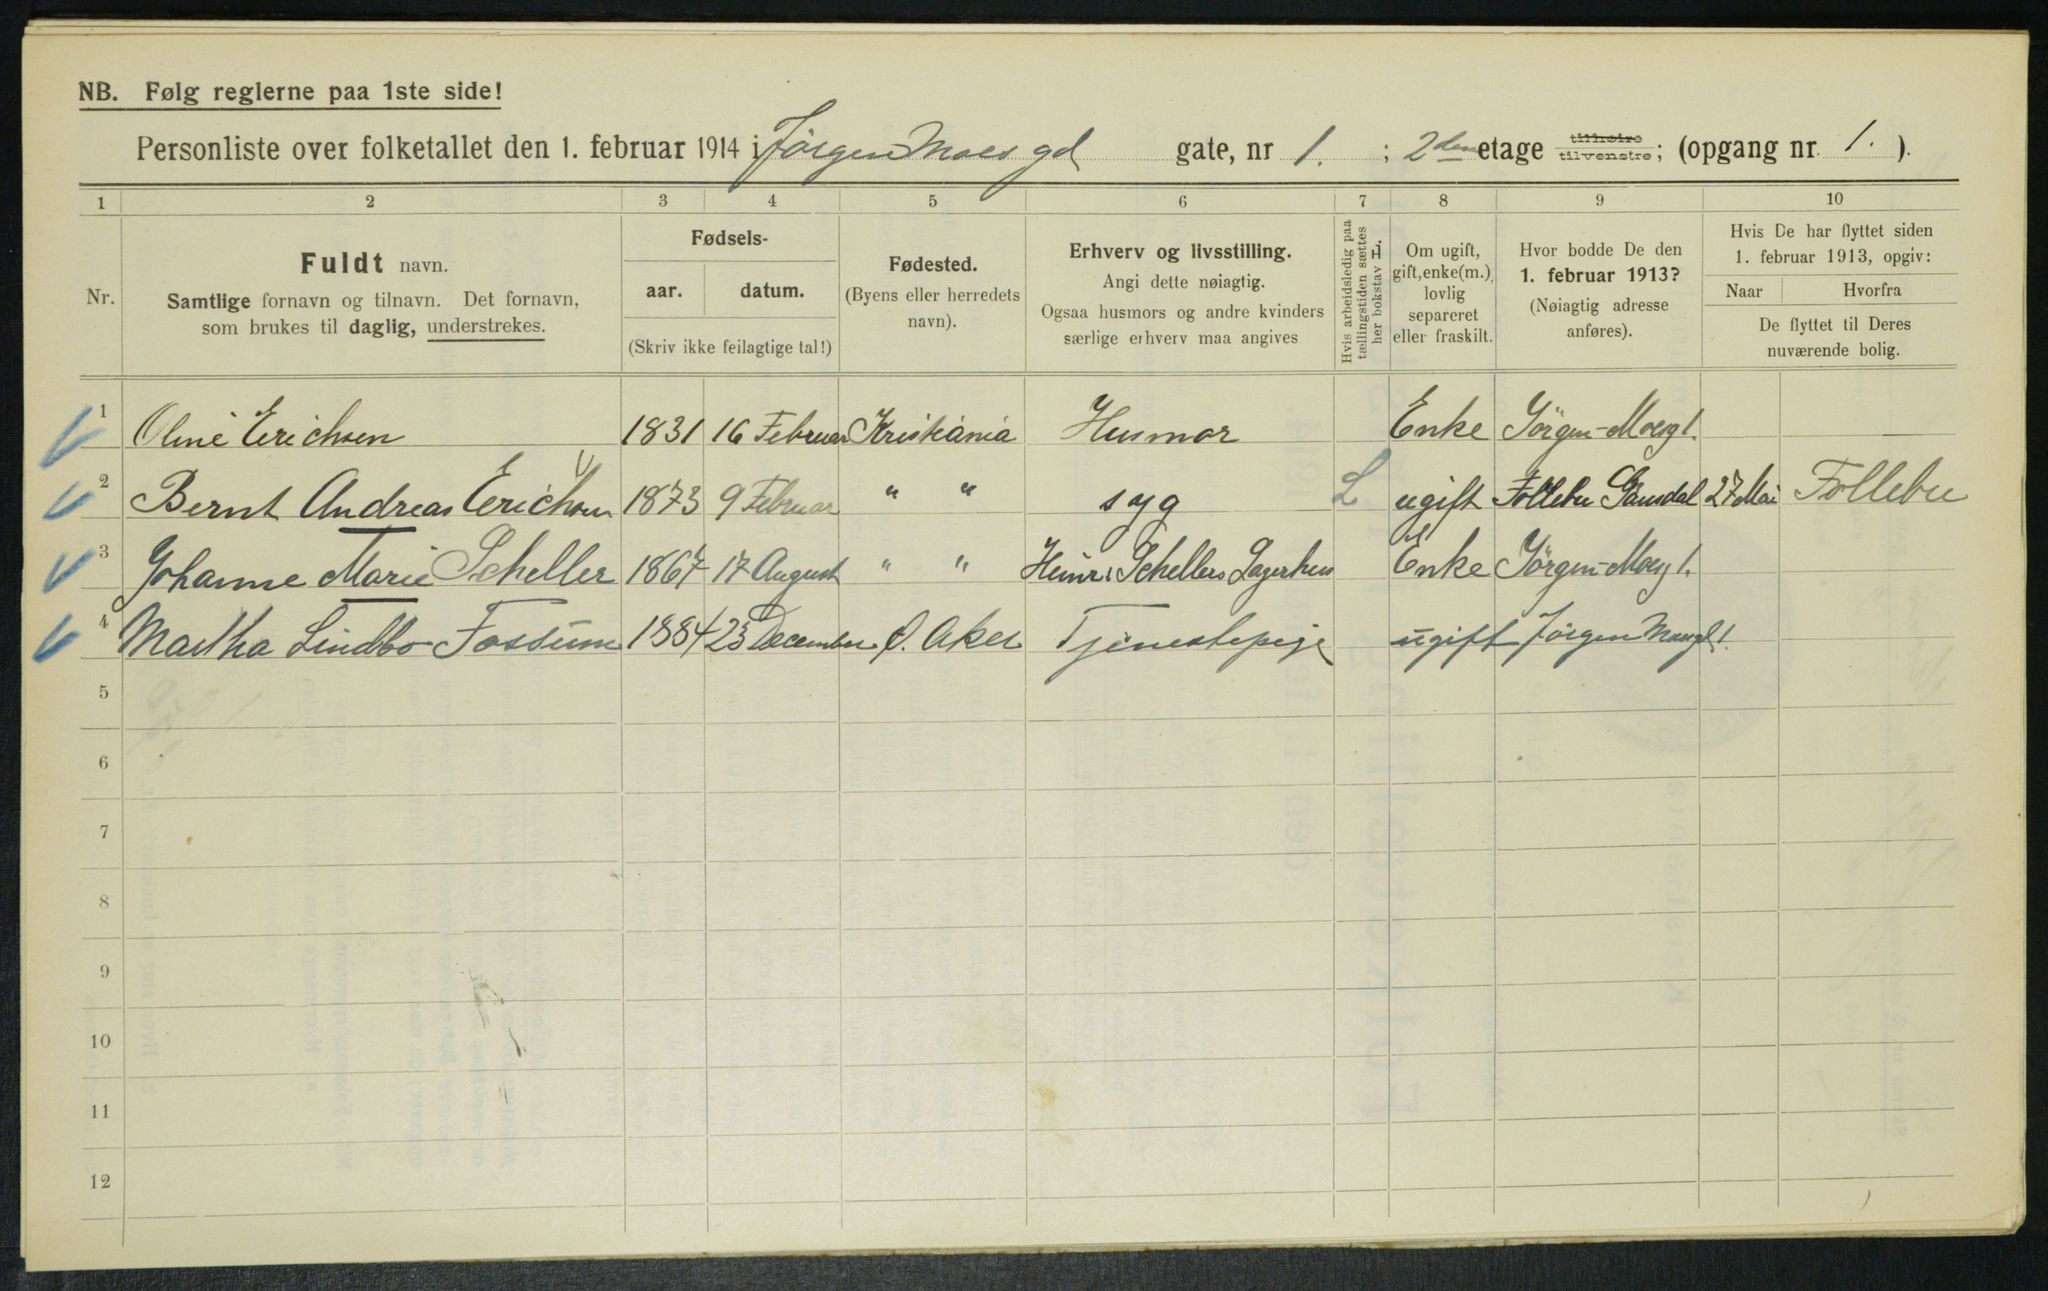 NB. Følg reglerne paa 1ste side!
Personliste over folketallet den 1. februar 1914 i Jörgen Moes gd gate, nr 1. ; 2den etage tilhøire tilvenstre; (opgang nr. 1. ).
1 2 3 4 5 6 7 8 9 10
Nr.
Fuldt navn.
Samtlige fornavn og tilnavn. Det fornavn,
som brukes til daglig, understrekes.
Fødsels-
aar. datum.
(Skriv ikke feilagtige tal!)
Fødested.
(Byens eller herredets
navn).
Erhverv og livsstilling.
Angi dette nøiagtig.
Ogsaa husmors og andre kvinders
særlige erhverv maa angives
Hvis arbeidsledig paa
tællingstiden sættes
her bokstav L.
Om ugift,
gift, enke(m.),
lovlig
separeret
eller fraskilt.
Hvor bodde De den
1. februar 1913?
(Nøiagtig adresse
anføres).
Hvis De har flyttet siden
1. februar 1913, opgiv:
Naar Hvorfra
De flyttet til Deres
nuværende bolig.
1 Oline Erichsen 1831 16 Februar Kristiania Husmor Enke Jörgen-Moesg 1.
2 Bernt Andreas Erichsen 1873 9 Februar " " syg L ugift Follebu Gausdal 27 Mai Follebu
3 Johanne Marie Scheller 1867 17 August " " Heinr. Schellers Lagerhus Enke Jörgen-Moesg 1.
4 Martha Lindbo Fossum 1884 23 December Ø. Aker Tjenestepige ugift Jörgen 1.
5
6
7
8
9
10
11
12